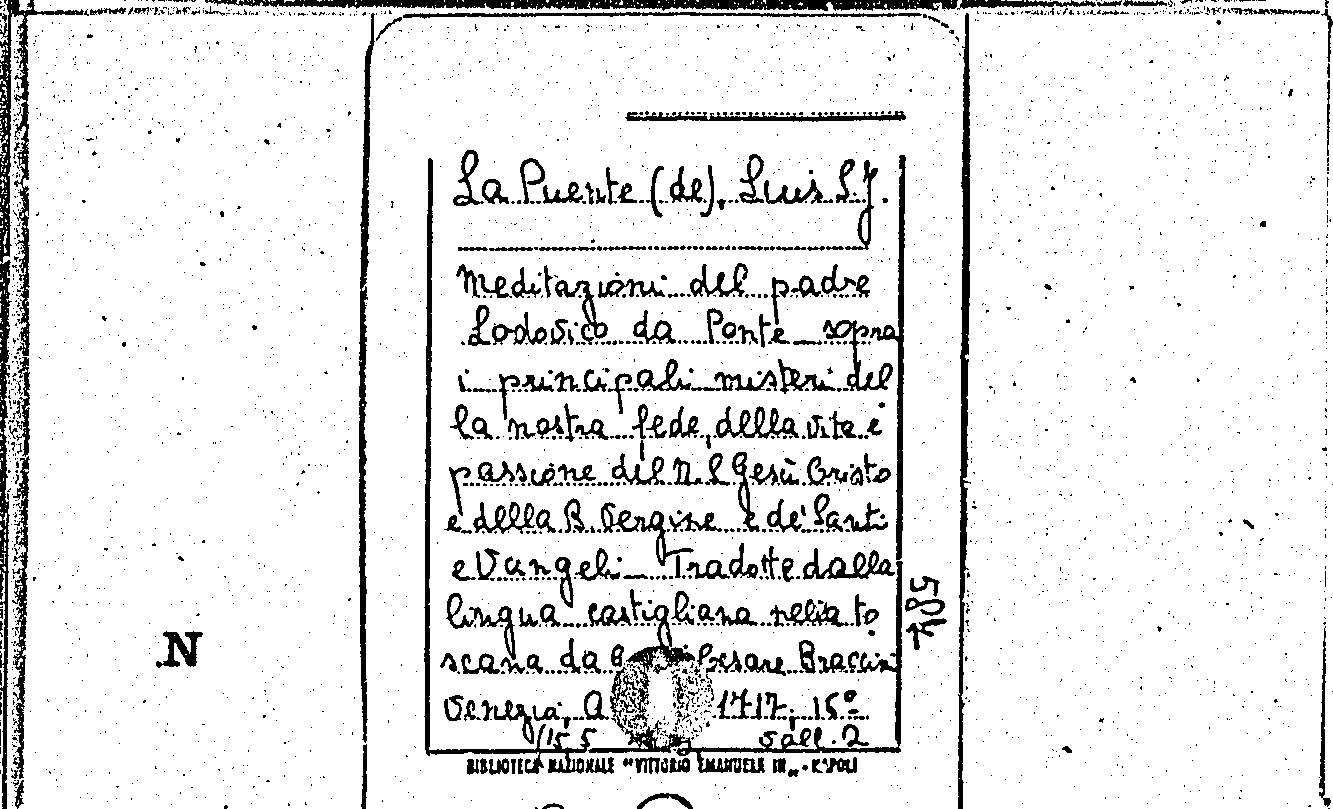 La Puente (de), Luis S.J.
Meditazioni del padre
Lodovico da Ponte sopra
i principali misteri del
la nostra fede, della vita e
passione del N. S. Gesù Cristo
e della B. Vergine e de' Santi
e Vangeli. Tradotte dalla
lingua castigliana nella to
scana da Cesare Braccini
Venezia, 1717. 15º
Sall. 2
BIBLIOTECA NAZIONALE "VITTORIO EMANUELE III" - NAPOLI
N